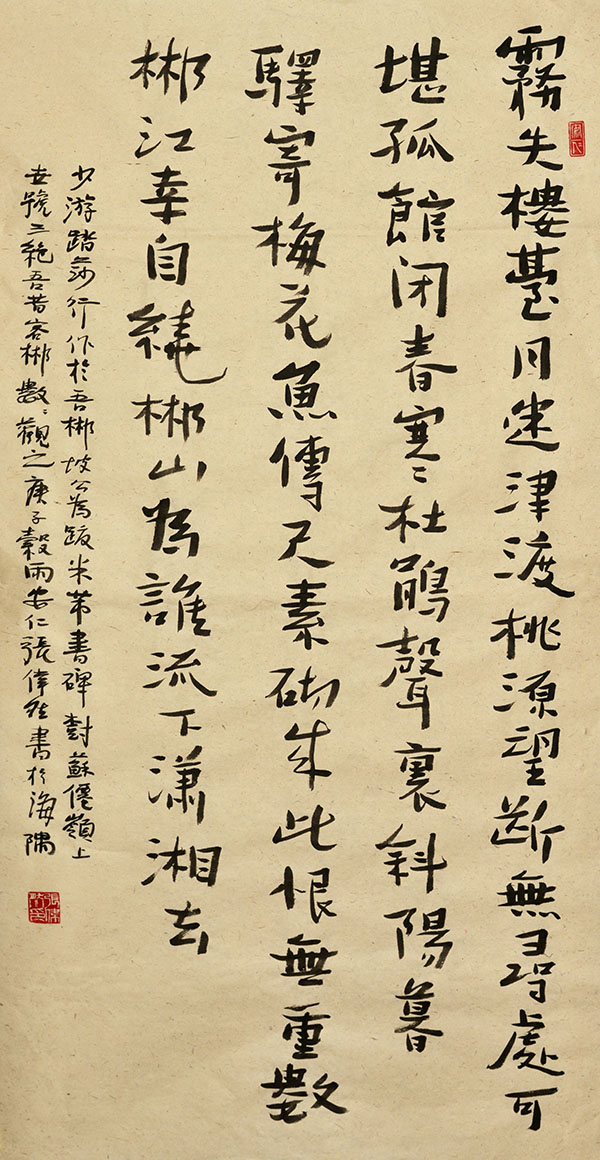 霧失樓臺月迷津渡桃源望斷無尋處可
堪孤館閉春寒杜鵑聲裏斜陽暮
驛寄梅花魚傳尺素砌成此恨無重數
郴江幸自繞郴山為誰流下瀟湘去
少游踏莎行作於吾郴坡公為跋米芾書碑蘇僊嶺上
世號三絕吾昔客郴數〻觀之庚子穀雨安仁張偉然書於海隅